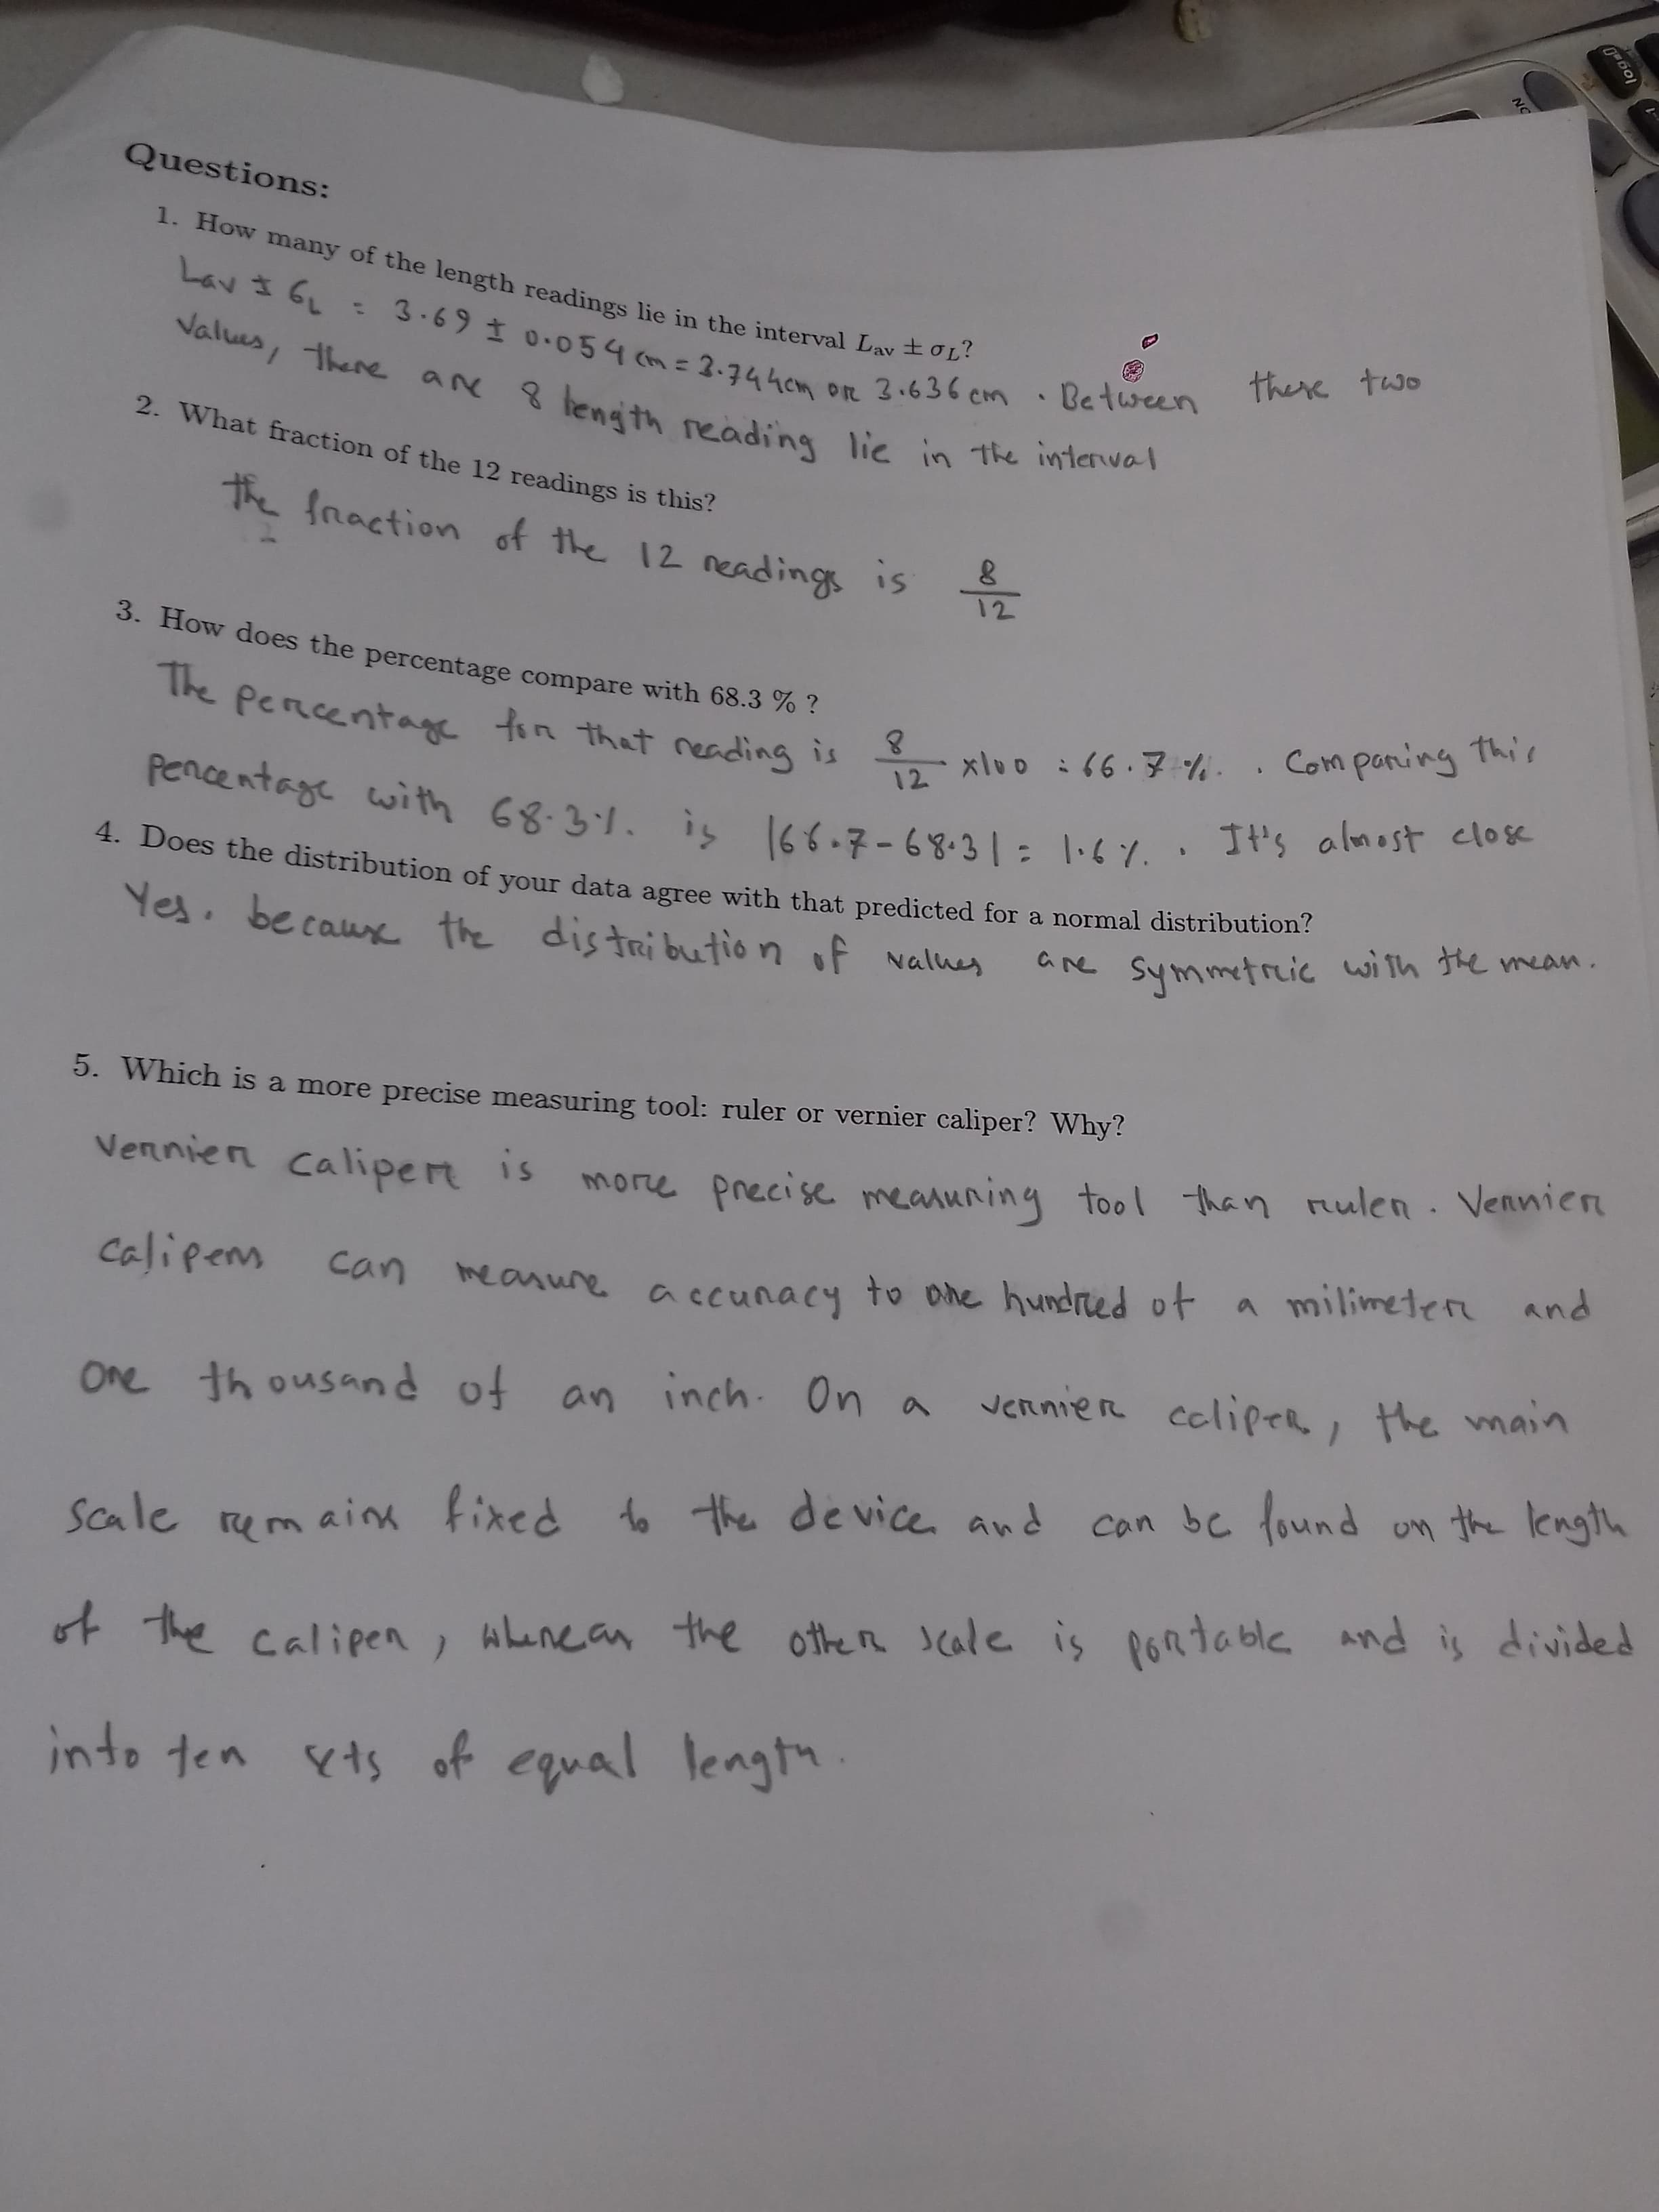 Questions:
1. How many of the length readings lie in the interval Lav ± σL?
Lav ± σL = 3.69 ± 0.054 cm = 3.744cm or 3.636 cm . Between these two
values, there are 8 length reading lie in the interval
2. What fraction of the 12 readings is this?
the fraction of the 12 readings is 8/12
3. How does the percentage compare with 68.3 % ?
The percentage for that reading is 8/12 x100 = 66.7 %. . Comparing this
percentage with 68.3%. is |66.7-68.3| = 1.6%. . It's almost close
4. Does the distribution of your data agree with that predicted for a normal distribution?
Yes. because the distribution of values are symmetric with the mean.
5. Which is a more precise measuring tool: ruler or vernier caliper? Why?
Vernier caliper is more precise measuring tool than ruler. Vernier
calipers can measure accuracy to one hundred of a milimeter and
one thousand of an inch. On a vernier caliper, the main
scale remains fixed to the device and can be found on the length
of the caliper, whereas the other scale is portable and is divided
into ten sets of equal length.
ON
log